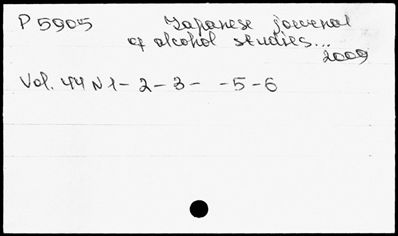 P 5905 Japanese journal
of alcohol studies...
2009
Vol. 44 N 1 - 2 - 3 - - 5 - 6